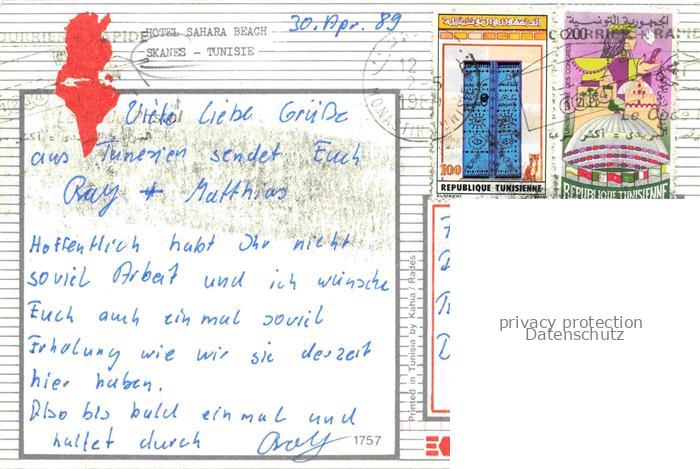 HOTEL SAHARA BEACH
SKANES - TUNISIE
30. Apr. 89
Viele liebe Grüße
aus Tunesien sendet Euch
Ralf + Matthias
Hoffentlich habt Ihr nicht
soviel Arbeit und ich wünsche
Euch auch einmal soviel
Erholung wie wir sie derzeit
hier haben.
Also bis bald einmal und
haltet durch Ralf
1757
Printed in Tunisia by Kahia / Rades
الجمهورية التونسية
100
REPUBLIQUE TUNISIENNE
الجمهورية التونسية
200
REPUBLIQUE TUNISIENNE
privacy protection
Datenschutz